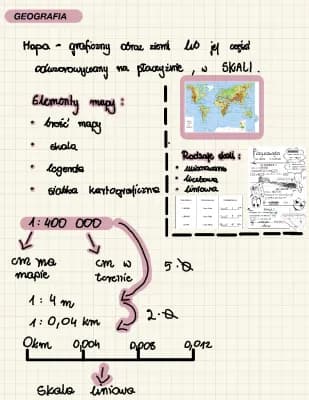 GEOGRAFIA
Mapa - graficzny obraz ziemi lub jej części
odwzorowywany na płaszyźnie, w SKALI.
Elementy mapy:
• treść mapy
• skala
• legenda
• siatka kartograficzna
Rodzaje skali:
• mianowana
• liczbowa
• liniowa
1:400 000
cm na
mapie
cm w
terenie
5·0
1:4 m
1:0,04 km
2·0
0km 0,004 0,008 0,012
Skala liniowa